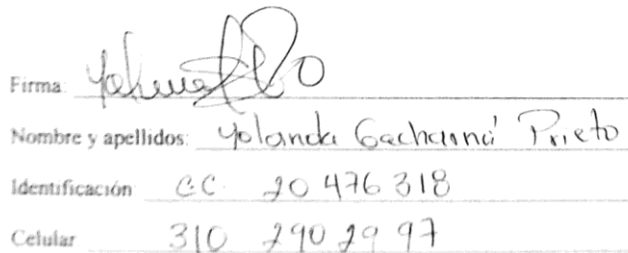 Firma:
Nombre y apellidos: Yolanda Gachancá Prieto
Identificación C.C. 20 476 318
Celular 310 290 29 97